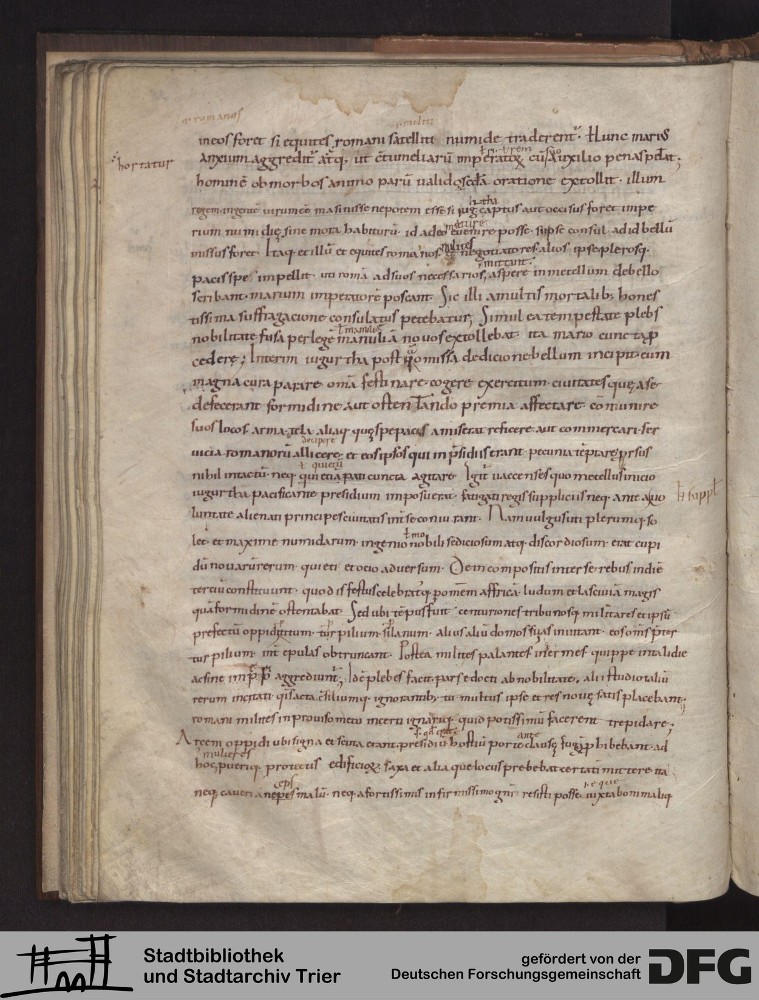 in eos foret si equites romani satelliti numide traderent. Hunc marius
anxium aggredit atq; ut contumeliarū auxilio penas petat;
hortatur
hominē ob morbos animo parū valido oratione extollit. illum
regem ingentē virum masinisse nepotem esse si iug captus aut occisus foret impe
rium numidię sine mora habiturū. id adeo evenire posse si ipse consul ad id bellū
missus foret. Itaq; et illū et equites romanos et negotiatores alios ipse plerosq;
pacis spe impellit. uti romā ad suos necessarios aspere in metellum de bello
scribant. marium imperatorē poscant. Sic illi a multis mortalib; hones
tissima suffragacione consulatus petebatur; Simul ea tempestate plebs
nobilitate fusa per legē manuliā novos extollebat. ita mario cuncta ꝓ
cedere; Interim iugurtha post omissa dedicione bellum incipit. cum
magna cura parare omīa festinare. cogere exercitum. civitates quę a se
defecerant formidine aut ostentando premia affectare. cōmunire
suos locos. arma. tela. aliaq; quę spe pacis amiserat reficere. aut commercari. ser
vicia romanorū allicere. et eos ipsos qui in p̄sidiis erant pecunia tēptare. prsus
nihil intactū neq; cuncta agitare. Igit vaccenses quo metellus inicio
iugurtha pacificante presidium imposuerat. fatigati regis suppliciis neq; ante a
luntate alienati principes civitatis int se coniurant. Nam vulgus uti plerumq; so
let. et maxime numidarum. ingenio nobili sediciosum atq; discordiosum erat cupi
dū novarū rerum. quieti et ocio adversum. Dein compositis inter se rebus in diē
terciū constituunt. quod is festus celebratq; p omem affricā. ludum et lasciviā magis
quā formidinē ostentabat. Sed ubi tēpus fuit. centuriones tribunosq; militares et ipsū
prefectū oppidi silanum. alius aliū domos suas invitant. eos omīs p̄ter
turpilium int epulas obtruncant. Postea milites palantes inermes quippe in tali die
ac sine aggrediunt; Idē plebes facit. pars edocti ab nobilitate. alii studio taliū
rerum incitati quis acta c̄siliumq; ignorantib; tumultus ipse et res novę satis placebant.
romani milites inproviso metu incerti ignariq; quid potissimū facerent trepidare;
Arcem oppidi ubi signa et scuta erant presidiū hostiū porte clausę fugā phibebant. ad
mulieres
hoc pueriq; edificiorum saxa et alia que locus prebebat certati mittere. ita
neq; caveri anceps malū. neq; a fortissimis infirmissimo gn̄i resisti posse. iuxta boni maliq;
Stadtbibliothek
und Stadtarchiv Trier
gefördert von der
Deutschen Forschungsgemeinschaft
DFG